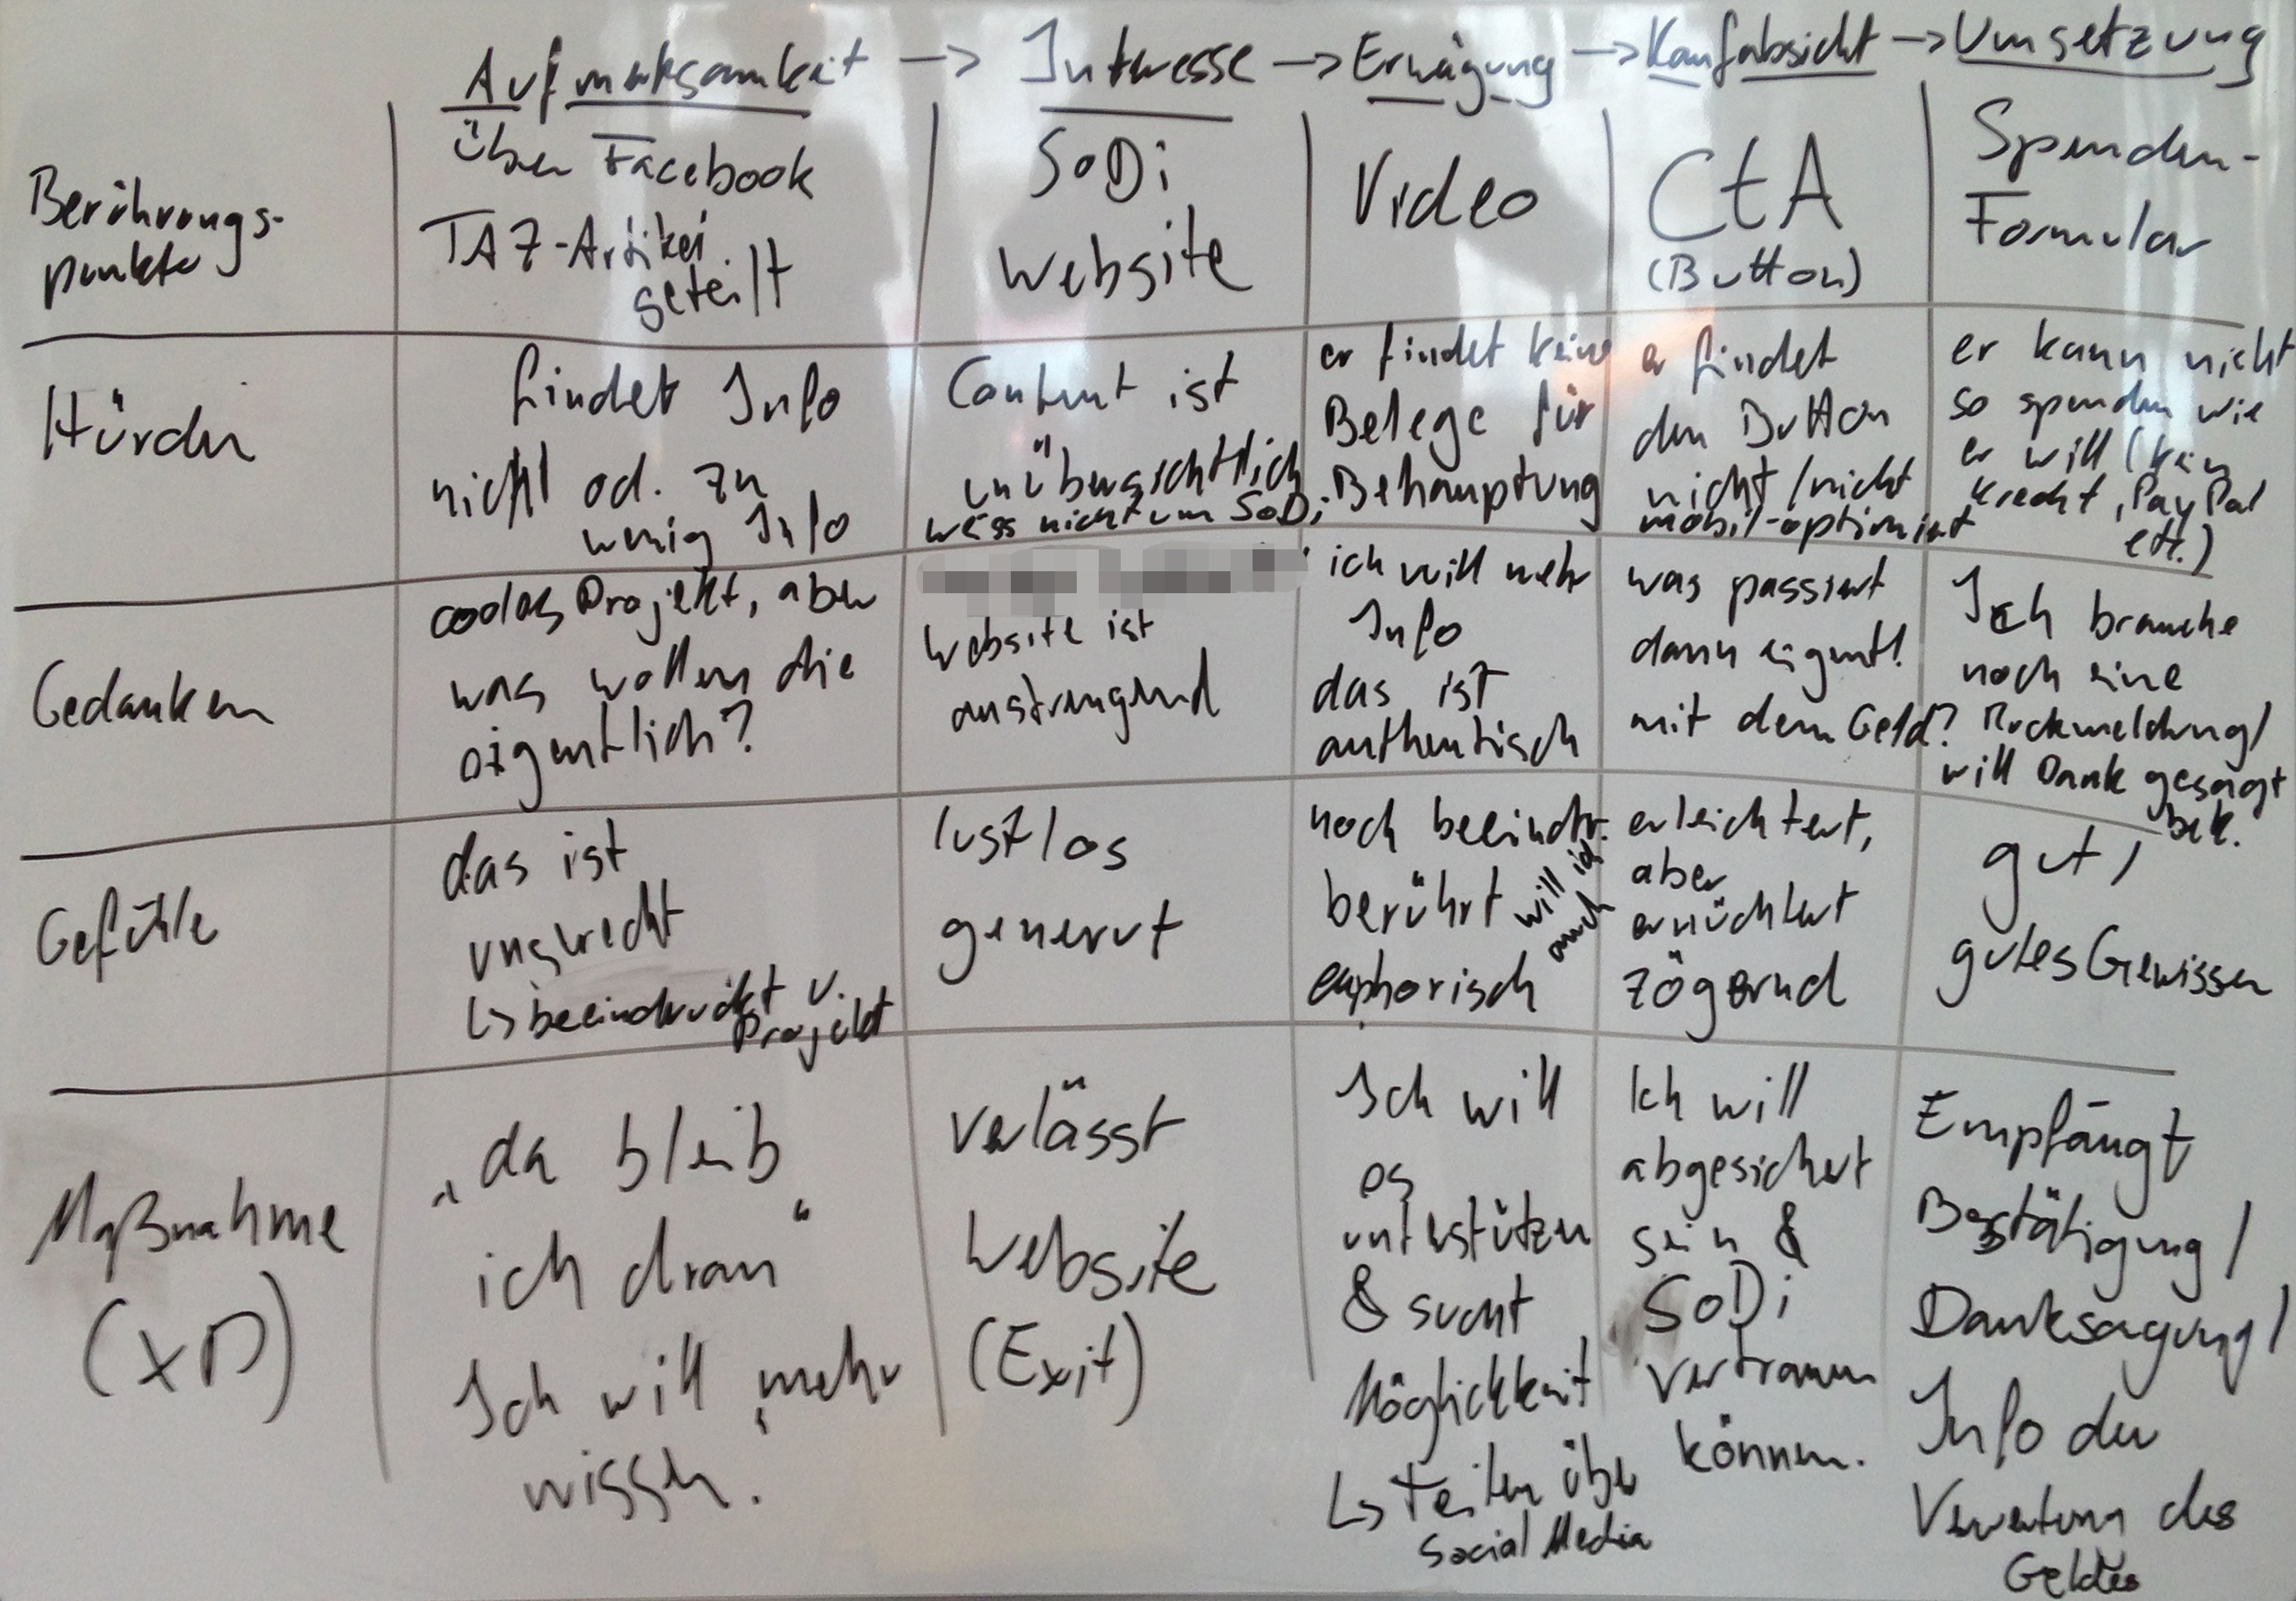 Aufmerksamkeit → Interesse → Erwägung → Kaufabsicht → Umsetzung
Berührungs-
punkte
über Facebook
TAZ-Artikel
geteilt
SoDi
Website
Video
CtA
(Button)
Spenden-
Formular
Hürden
findet Info
nicht od. zu
wenig Info
Content ist
unübersichtlich
weiss nicht um SoDi
er findet keine
Belege für
Behauptung
er findet
den Button
nicht/nicht
mobil-optimiert
er kann nicht
so spenden wie
er will (kein
Kredit, PayPal
etc.)
Gedanken
cooles Projekt, aber
was wollen die
eigentlich?
Website ist
anstrengend
ich will mehr
Info
das ist
authentisch
was passiert
dann eigentl.
mit dem Geld?
Ich brauche
noch eine
Rückmeldung/
will Dank gesagt
bek.
Gefühle
das ist
ungerecht
↳ beeindruckt v.
Projekt
lustlos
genervt
noch beeindr.
berührt
will ich
auch
euphorisch
erleichtert,
aber
ernüchtert
zögernd
gut/
gutes Gewissen
Maßnahme
(XD)
„da bleib
ich dran“
Ich will mehr
wissen.
verlässt
Website
(Exit)
Ich will
es
unterstützen
& sucht
Möglichkeit
↳ Teilen über
Social Media
Ich will
abgesichert
sein &
SoDi
vertrauen
können.
Empfängt
Bestätigung/
Danksagung/
Info der
Verwertung des
Geldes